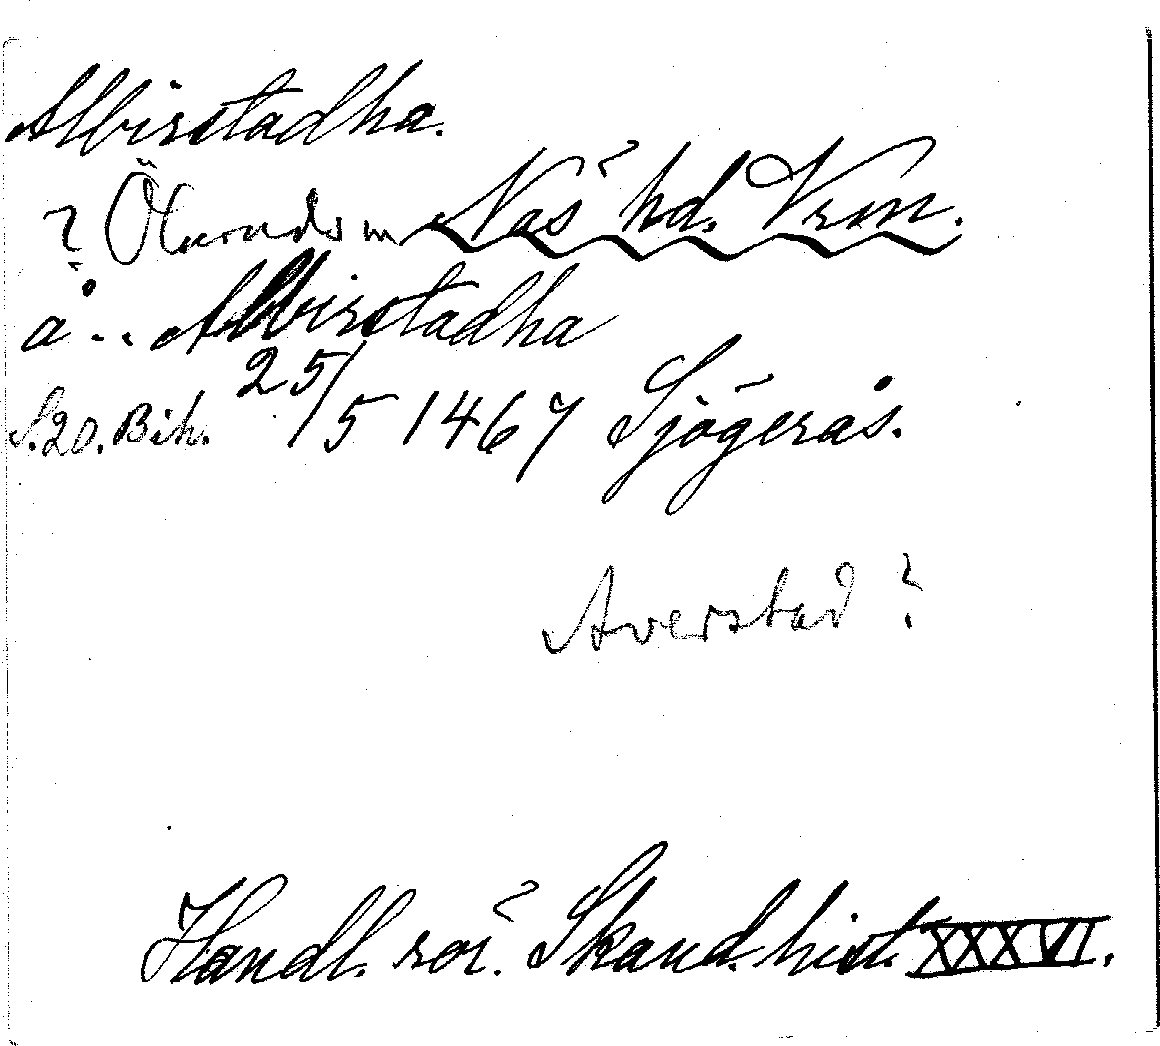 Albirstadha.
? Ölmudsm Näs hd. Vrm.
å .. Albirstadha
S. 20. Bih. 25/5 1467 Sjögerås.
Averstad?
Handl. rör. Skand. hist. XXXVI.